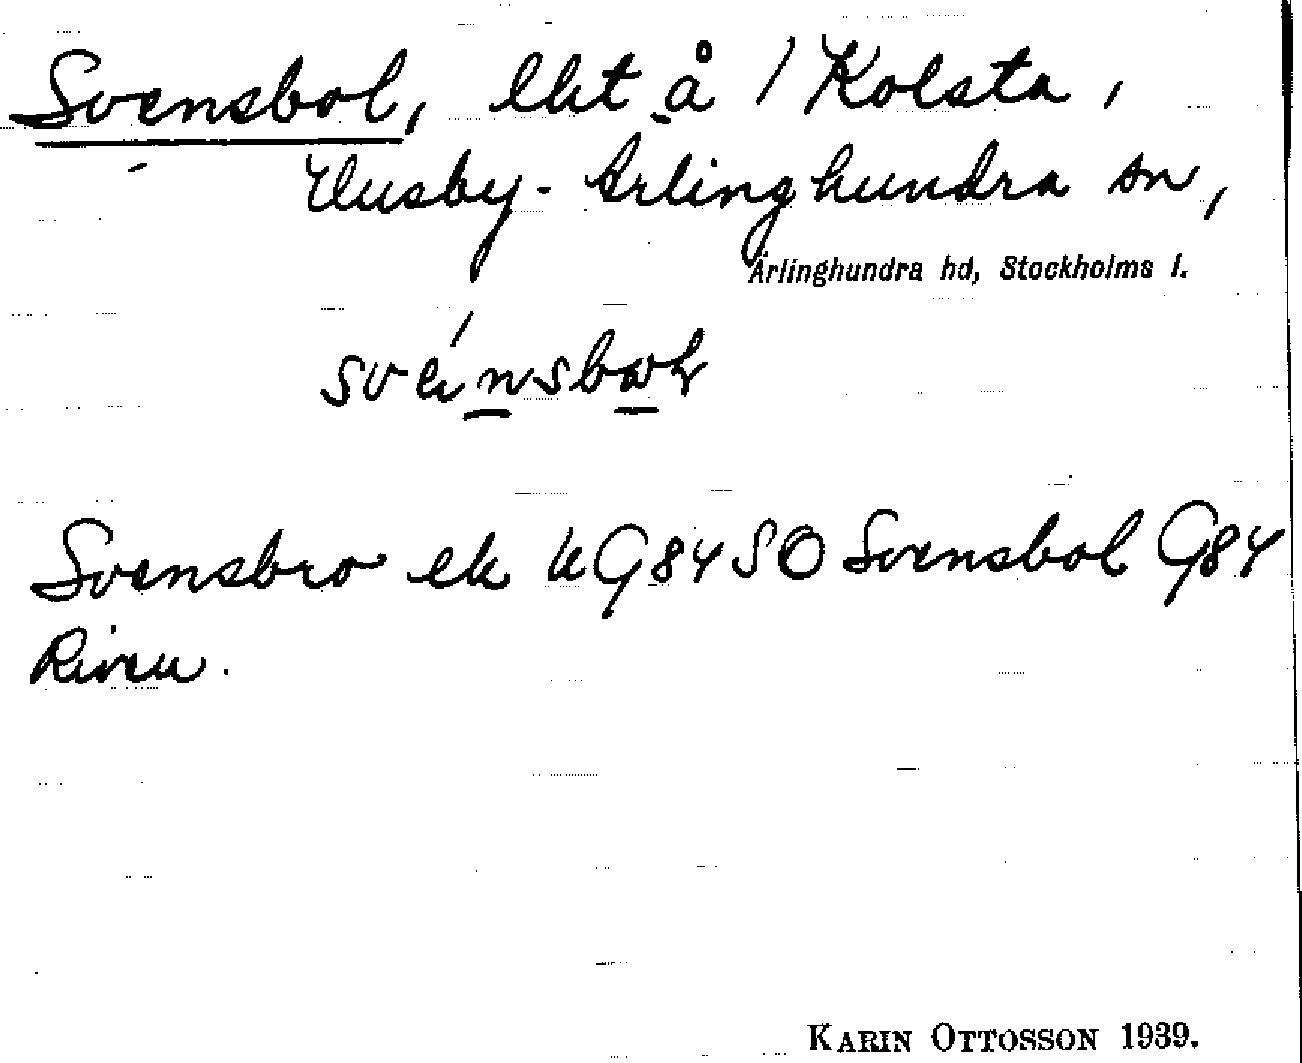 Svensbol, lht å 1 Kolsta,
Husby-Ärlinghundra sn,
Ärlinghundra hd, Stockholms l.
Svensbro ek KG84SO Svensbol G84
Riven.
KARIN OTTOSSON 1939.